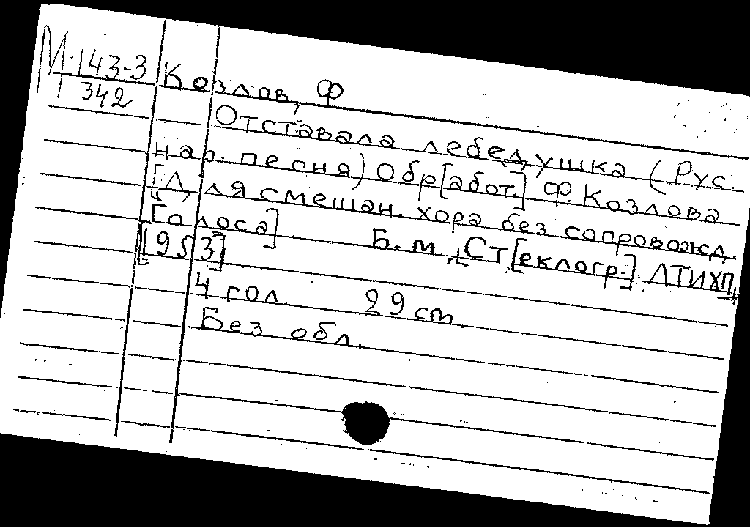 М-143-3
342
Козлов, Ф
Отставала лебедушка (Рус.
нар. песня) Обр[абот.] Ф Козлова
[Для смешан. хора без сопровожд.
Голоса] Б. м., Ст[еклогр.] ЛТИХП,
[953]
4 гол 29 cm.
Без обл.